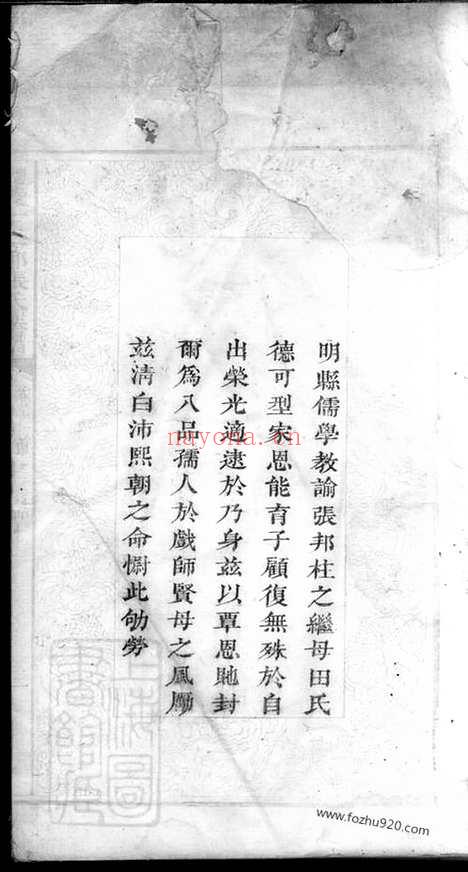 明縣儒學教諭張邦柱之繼母田氏
德可型家恩能育子顧復無殊於自
出榮光遹逮於乃身茲以覃恩貤封
爾為八品孺人於戲師賢母之風勵
茲清白沛熙朝之命慰此劬勞
nayona.cn
www.fozhu920.com